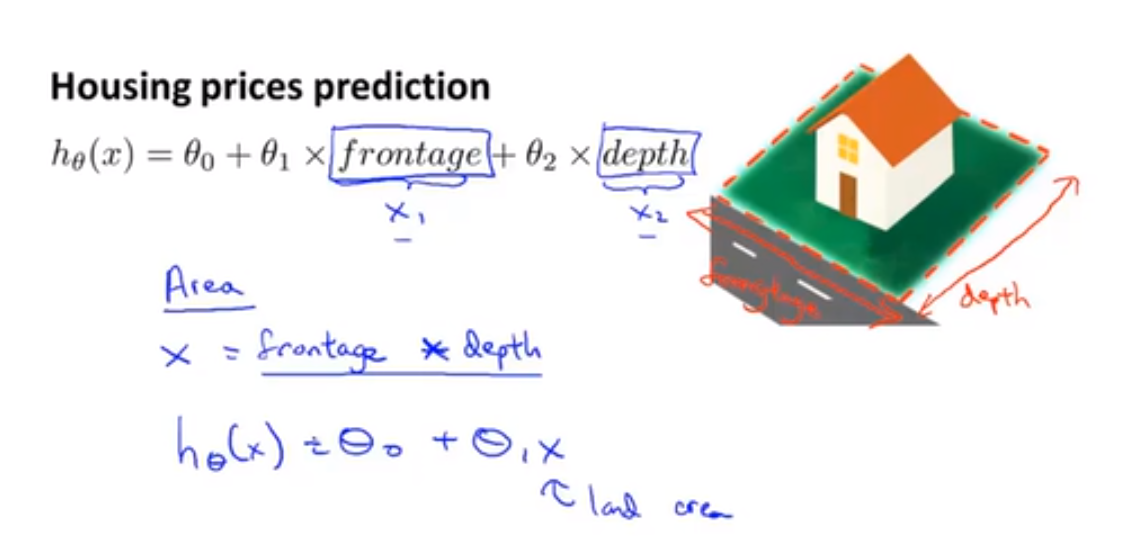 Housing prices prediction
hθ(x) = θ0 + θ1 × frontage + θ2 × depth
x1
x2
frontage
depth
Area
x = frontage * depth
hθ(x) = θ0 + θ1x
land area